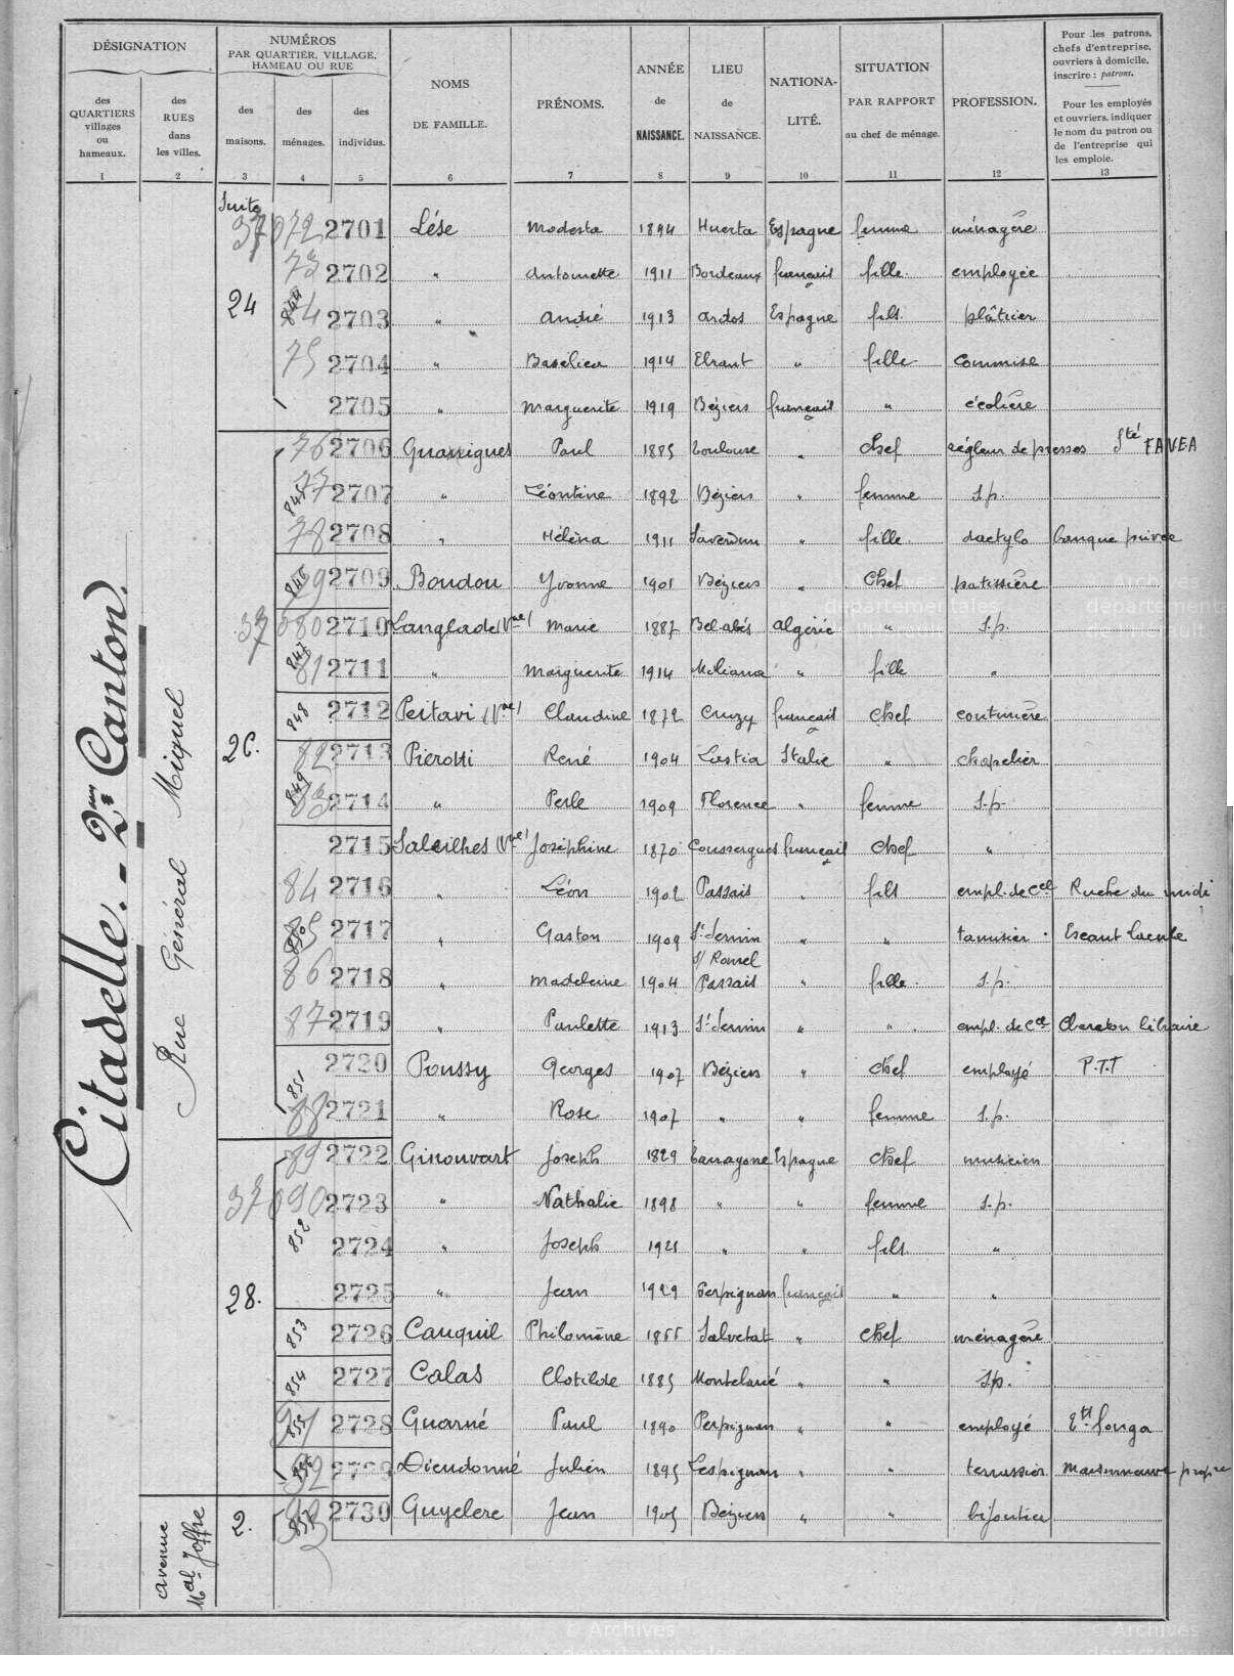 DÉSIGNATION
NUMÉROS
PAR QUARTIER, VILLAGE,
HAMEAU OU RUE
des QUARTIERS villages ou hameaux.
des RUES dans les villes.
des maisons.
des ménages.
des individus.
NOMS DE FAMILLE.
PRÉNOMS.
ANNÉE de NAISSANCE.
LIEU de NAISSANCE.
NATIONALITÉ.
SITUATION PAR RAPPORT au chef de ménage.
PROFESSION.
Pour les patrons, chefs d'entreprise, ouvriers à domicile, inscrire : patrons.
Pour les employés et ouvriers, indiquer le nom du patron ou de l'entreprise qui les emploie.
1 2 3 4 5 6 7 8 9 10 11 12 13
Citadelle. - 2me Canton.
Rue Général Miquel
Suite
37072 2701 Lése Modesta 1894 Huerta Espagne femme ménagère
73 2702 " Antoinette 1911 Bordeaux français fille employée
24 844 74 2703 " André 1913 Ardos Espagne fils plâtrier
75 2704 " Baselica 1914 " fille Commise
2705 " Marguerite 1919 Béziers français " écolière
76 2706 Guarrigues Paul 1885 Toulouse " chef régleur de presses Sté FAVEA
845 77 2707 " Léontine 1892 Béziers " femme s.p.
78 2708 " Héléna 1911 Saverdun " fille dactylo banque privée
846 79 2709 Boudou Yvonne 1901 Béziers " Chef patissière
37080 2710 Langlade (Vve) Marie 1887 Bel abés algérie " s.p.
847 81 2711 " Marguerite 1914 Miliana " fille "
848 2712 Peitavi (Vve) Claudine 1872 Cruzy français chef couturière
26. 82 2713 Pierotti René 1904 Italie " chapelier
849 83 2714 " Perle 1909 Florence " femme s.p.
2715 Saleilhes (Vve) Joséphine 1870 Coussergues français chef "
84 2716 " Léon 1902 Passais " fils empl. de Cce Ruche du midi
850 85 2717 " Gaston 1909 St Sernin s/ Rancel " " tamisier
86 2718 " Madeleine 1904 Passais " fille s.p.
87 2719 " Paulette 1913 St Sernin " " empl. de Cce libraire
851 2720 Poussy Georges 1907 Béziers " chef employé P.T.T
88 2721 " Rose 1907 " " femme s.p.
89 2722 Ginouvart Joseph 1889 Tarragone Espagne chef musicien
37090 2723 " Nathalie 1898 " " femme s.p.
852 2724 " Joseph 1921 " " fils "
28. 2725 " Jean 1929 Perpignan français " "
853 2726 Cauquil Philomène 1855 Salvetat " chef ménagère
854 2727 Calas Clotilde 1885 " " s.p.
855 91 2728 Guarné Paul 1890 Perpignan " " employé
856 92 2729 Dieudonné Julien 1895 Lespignan " " terrassier
Avenue Mal Joffre
2. 857 93 2730 Guyclerc Jean 1905 Béziers " " bijoutier
© Archives départementales